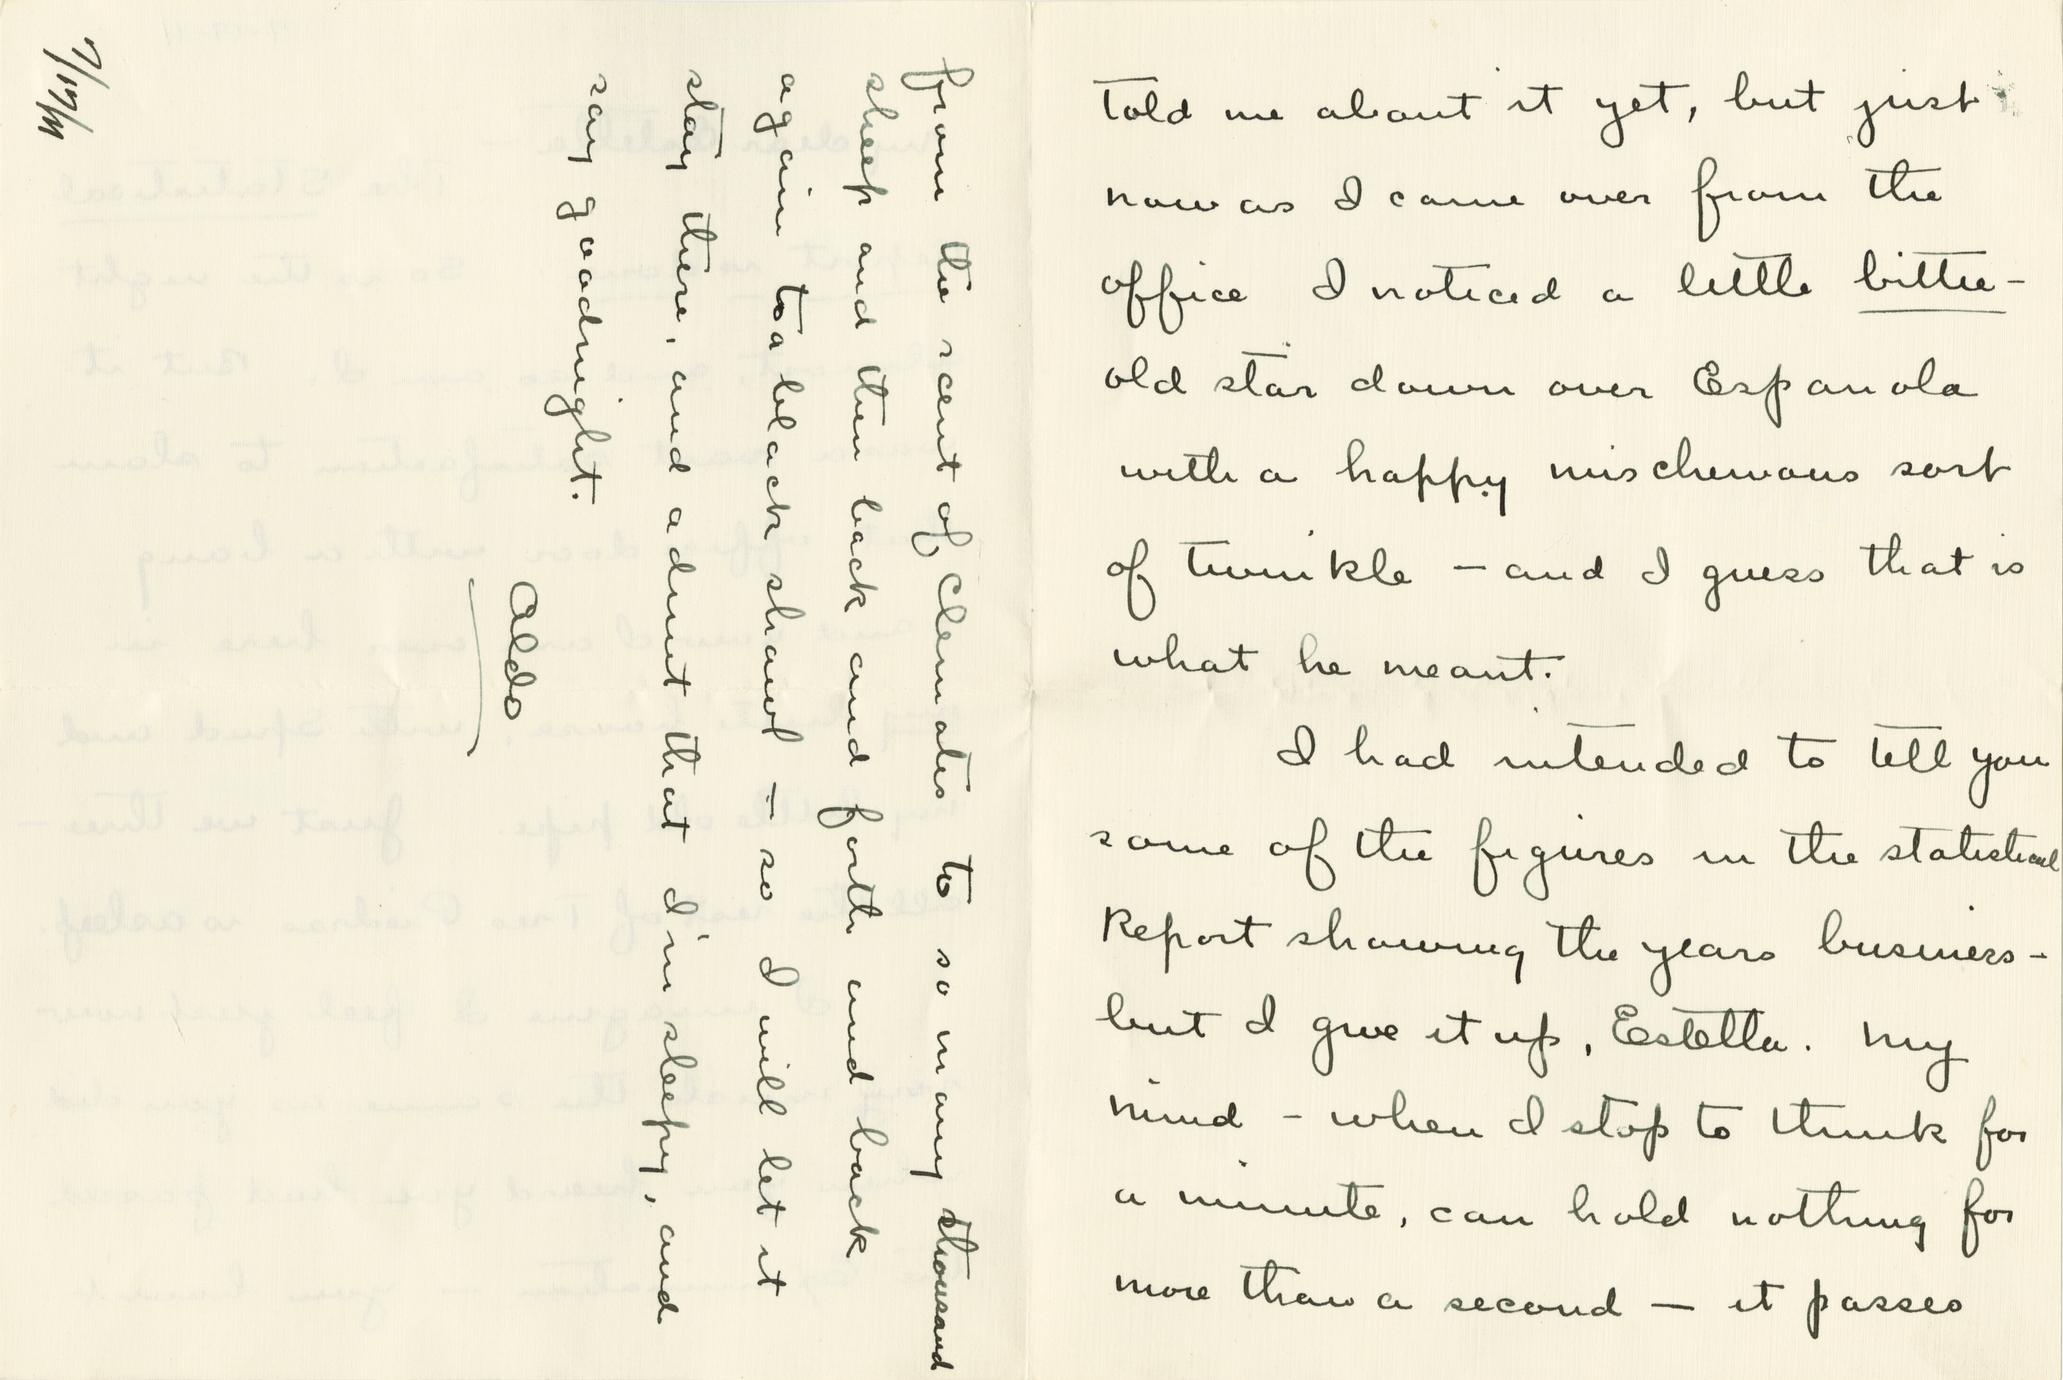 told me about it yet, but just
now as I came over from the
office I noticed a little bittie-
old star down over Espanola
with a happy mischevous sort
of twinkle — and I guess that is
what he meant.
I had intended to tell you
some of the figures in the statistical
Report showing the years business-
but I give it up, Estella. My
mind - when I stop to think for
a minute, can hold nothing for
more than a second — it passes
from the scent of Clematis to so many thousand
sheep and then back and forth and back
again to a black shawl — so I will let it
stay there, and admit that I'm sleepy, and
say goodnight.
Aldo